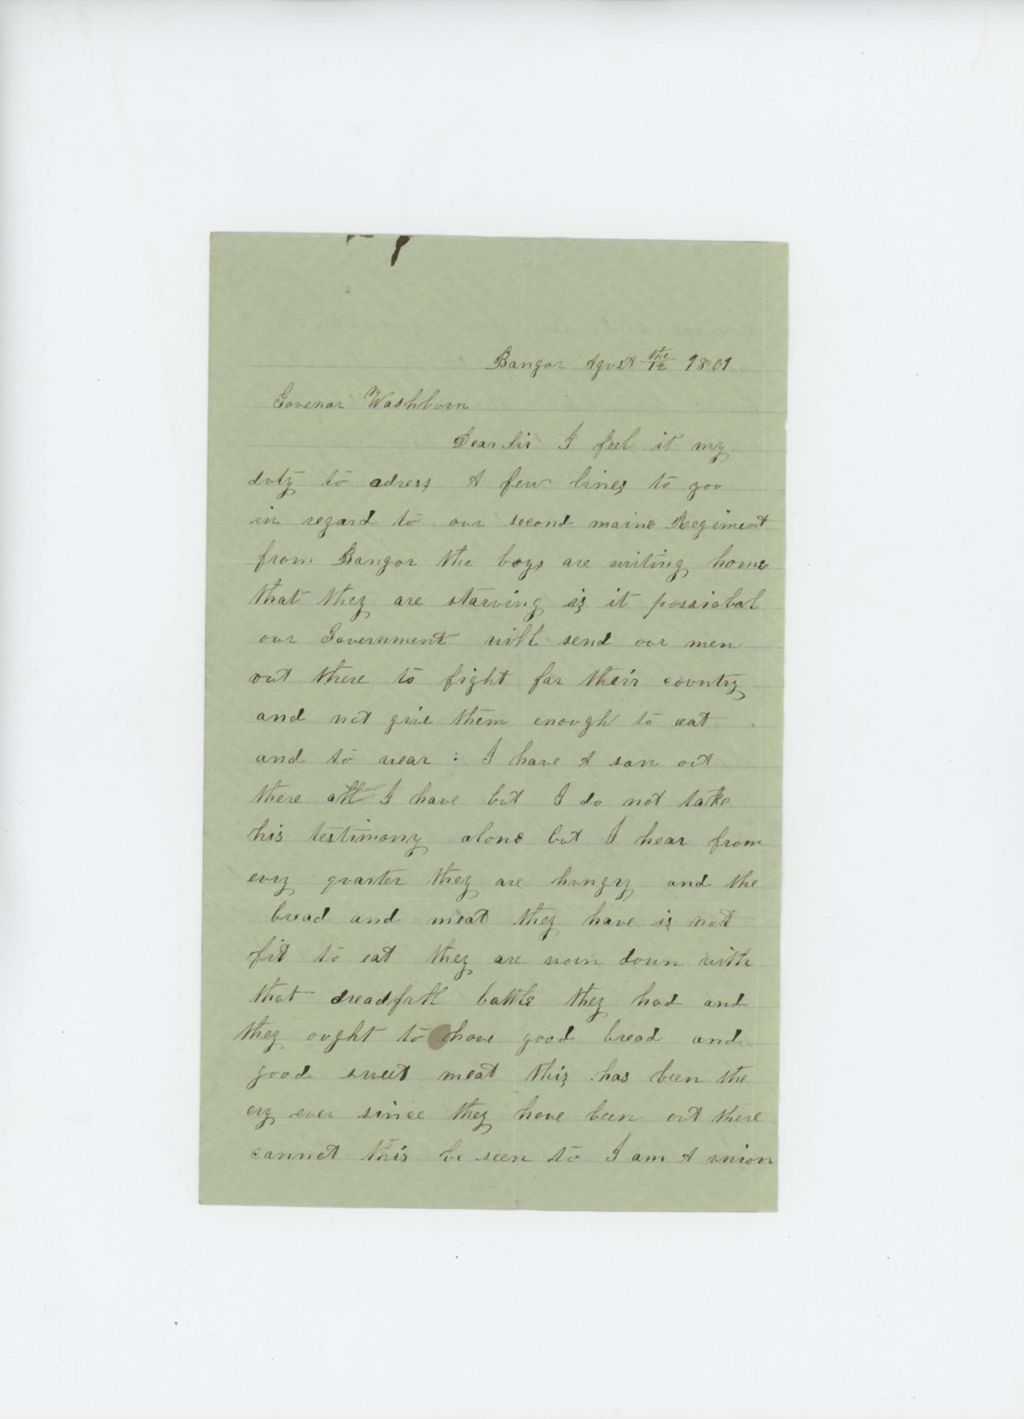 Bangor Agust the 12 1861
Govenor Washborn
Dear Sir I feel it my
duty to adress A few lines to you
in regard to our second maine Regiment
from Bangor the boys are writing home
that they are starving is it possiabal
our Government will send our men
out there to fight for their country
and not give them enough to eat
and to wear : I have A son out
there all I have but I do not take
his testimony alone but I hear from
evry quarter they are hungry and the
bread and meat they have is not
fit to eat they are worn down with
that dreadfull battle they had and
they ought to have good bread and
good sweet meat this has been the
cry ever since they have been out there
cannot this be seen to I am A union